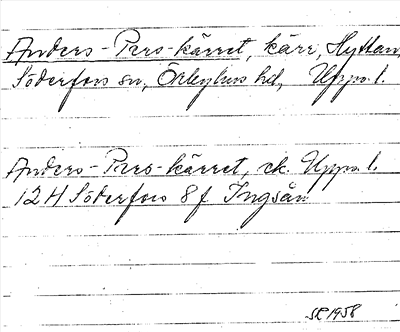 Anders-Pers-kärret, kärr, Hyttan,
Söderfors sn, Örbyhus hd, Upps. l.
Anders-Pers-kärret, ek. Upps. l.
12 H Söderfors 8 f Ingsån
SR 1958